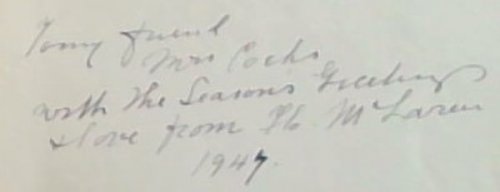 To my friend
Mrs Cocks
with the Seasons Greetings
& love from McLaren
1947.